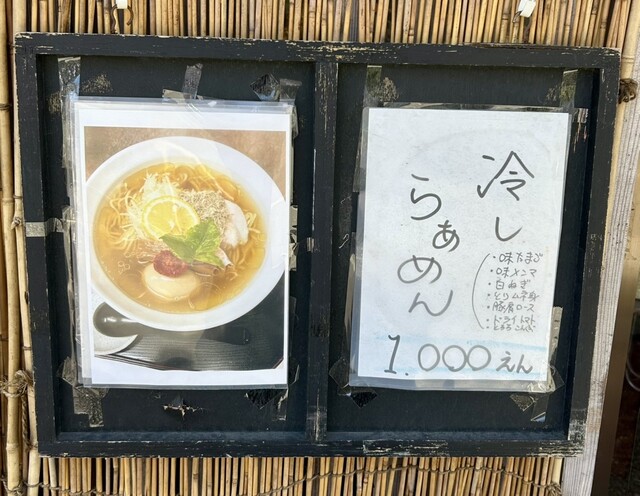 冷し
らぁめん
・味たまご
・味メンマ
・白ねぎ
・とりムネ肉
・豚肩ロース
・ドライトマト
・とろろこんぶ
1.000えん